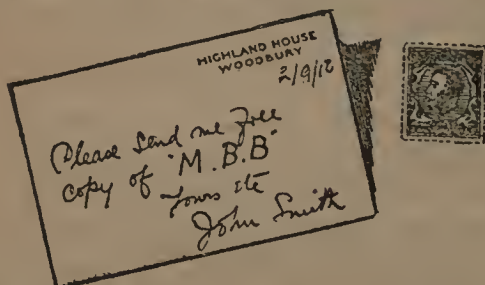 HIGHLAND HOUSE
WOODBURY
2/9/12
Please Send me Free
copy of "M.B.B"
Yours etc
John Smith